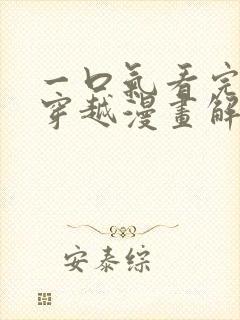 一口氣看完
穿越漫畫解
安泰綜